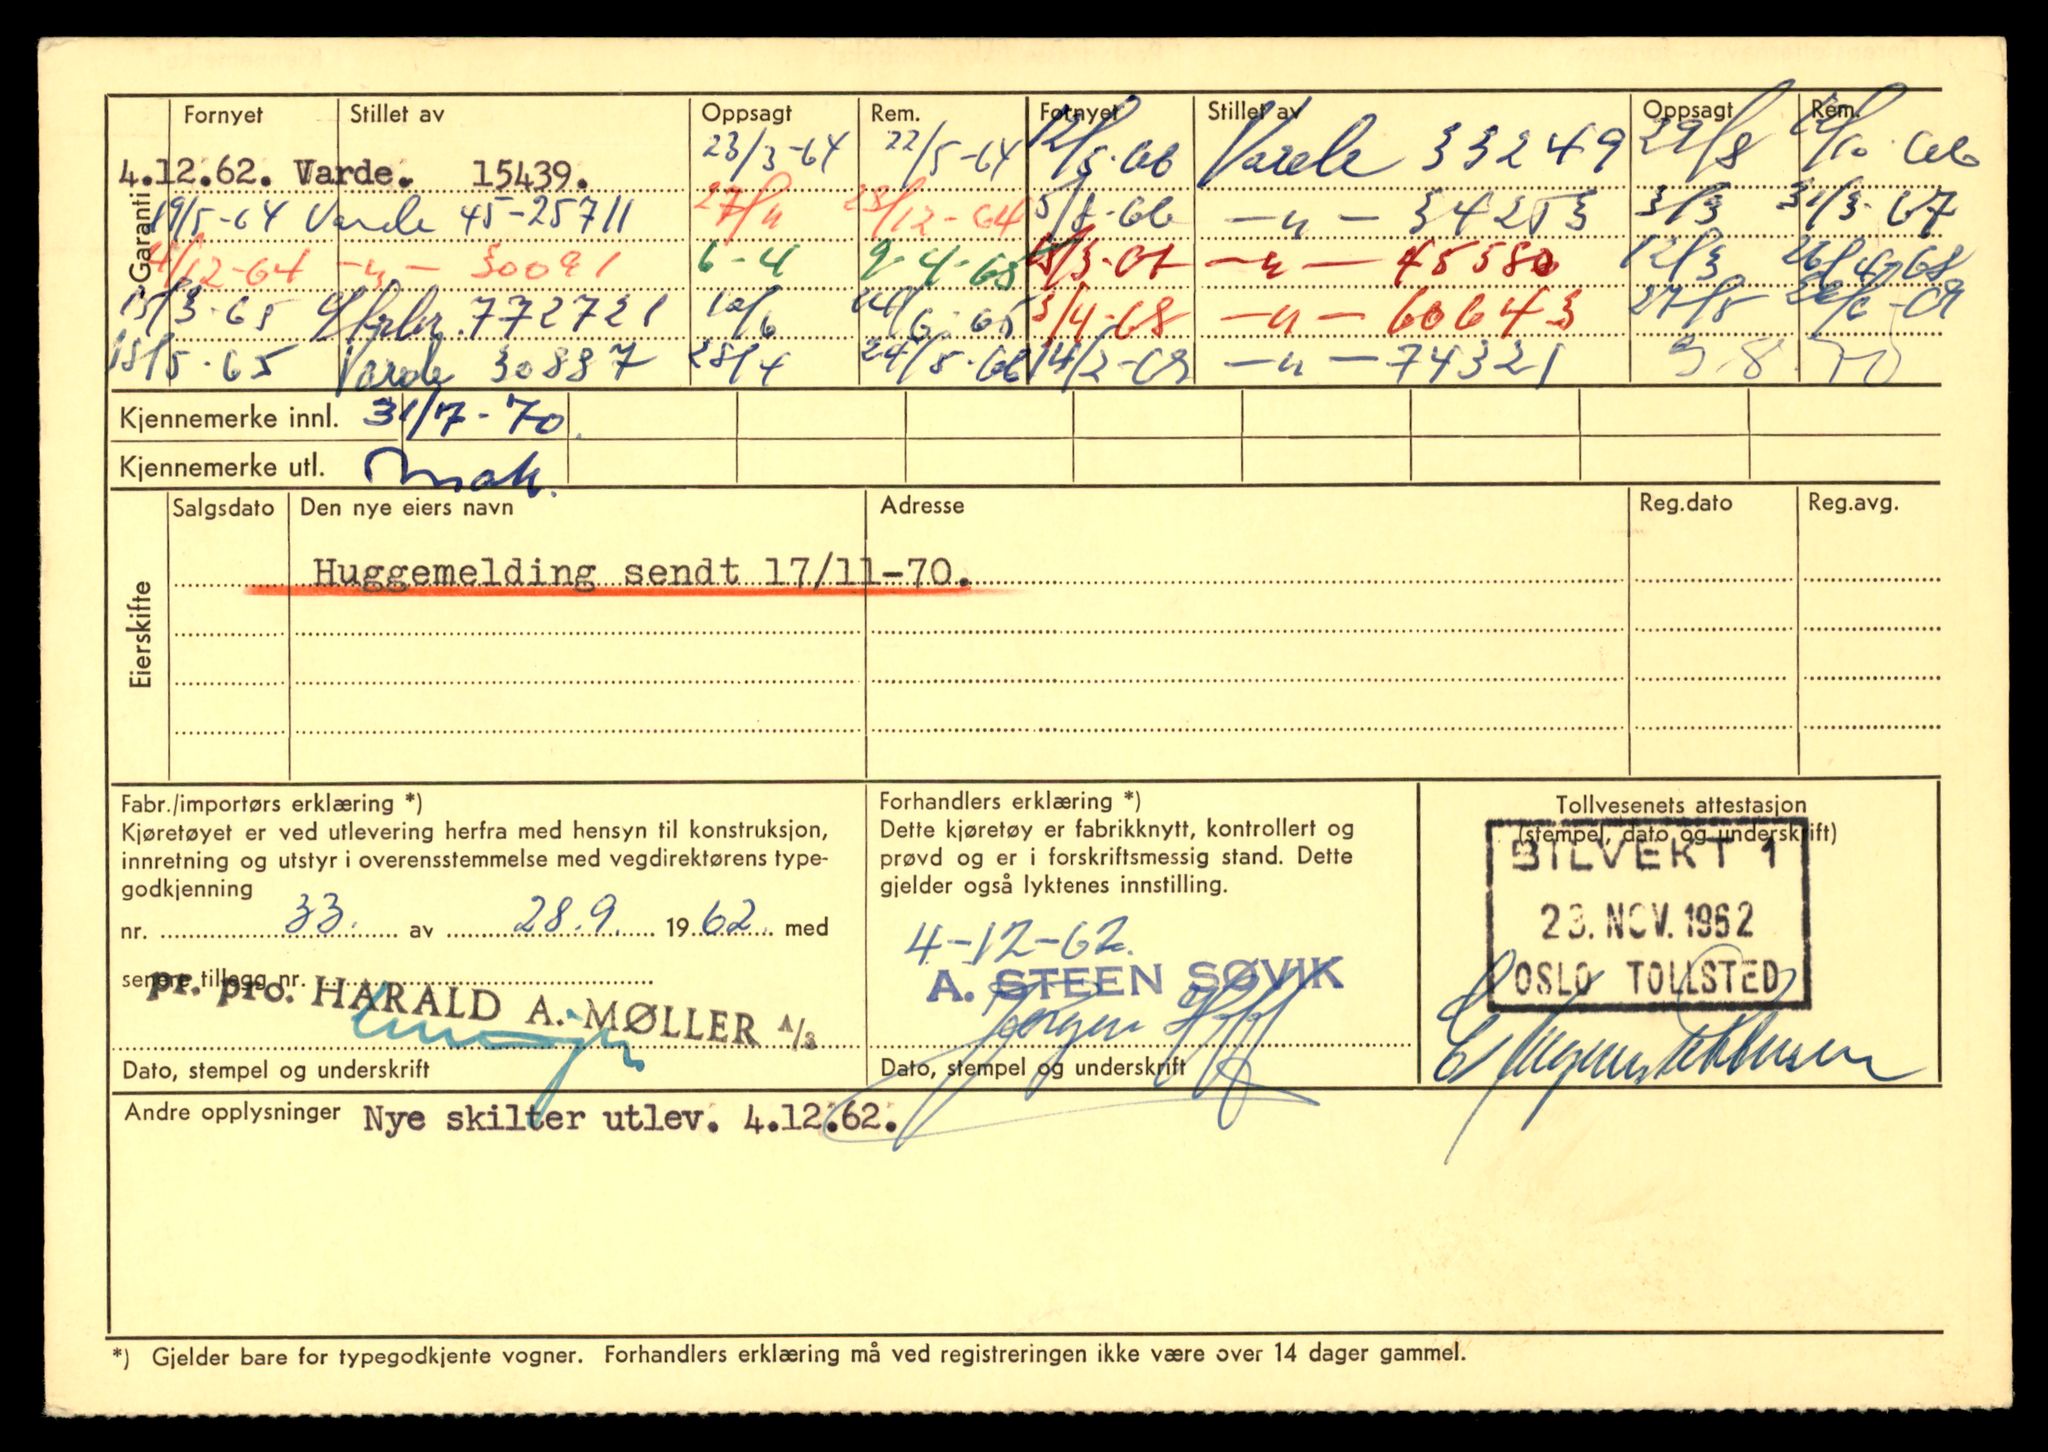 Garanti: Fornyet Stillet av Oppsagt Rem. Fornyet Stillet av Oppsagt Rem.
4.12.62. Varde. 15439. 23/3-64 22/5-64 12/5-66 Varde 33249 29/8
19/5-64 Varde 45-25711 27/11 23/12-64 5/8-66 -"- 34253 3/3 31/3-67
4/12-64 -"- 30091 6-4 9-4-65 -"- 45580 12/3
15/3-65 772721 10/6 3/4-68 -"- 60643 27/5
18/5-65 Varde 30887 28/4 24/5-66 14/2-69 -"- 74321 3.8.70
Kjennemerke innl. 31/7-70.
Kjennemerke utl.
Eierskifte Salgsdato Den nye eiers navn Adresse Reg.dato Reg.avg.
Huggemelding sendt 17/11-70.
Fabr./importørs erklæring *)
Kjøretøyet er ved utlevering herfra med hensyn til konstruksjon,
innretning og utstyr i overensstemmelse med vegdirektørens type-
godkjenning
nr. 33. av 28.9. 1962. med
senere tillegg nr.
pr. pro. HARALD A. MØLLER A/S
Dato, stempel og underskrift
Forhandlers erklæring *)
Dette kjøretøy er fabrikknytt, kontrollert og
prøvd og er i forskriftsmessig stand. Dette
gjelder også lyktenes innstilling.
4-12-62.
A. STEEN SØVIK
Jørgen
Dato, stempel og underskrift
Tollvesenets attestasjon
(stempel, dato og underskrift)
BILVEKT 1
23. NOV. 1962
OSLO TOLLSTED
Andre opplysninger Nye skilter utlev. 4.12.62.
*) Gjelder bare for typegodkjente vogner. Forhandlers erklæring må ved registreringen ikke være over 14 dager gammel.